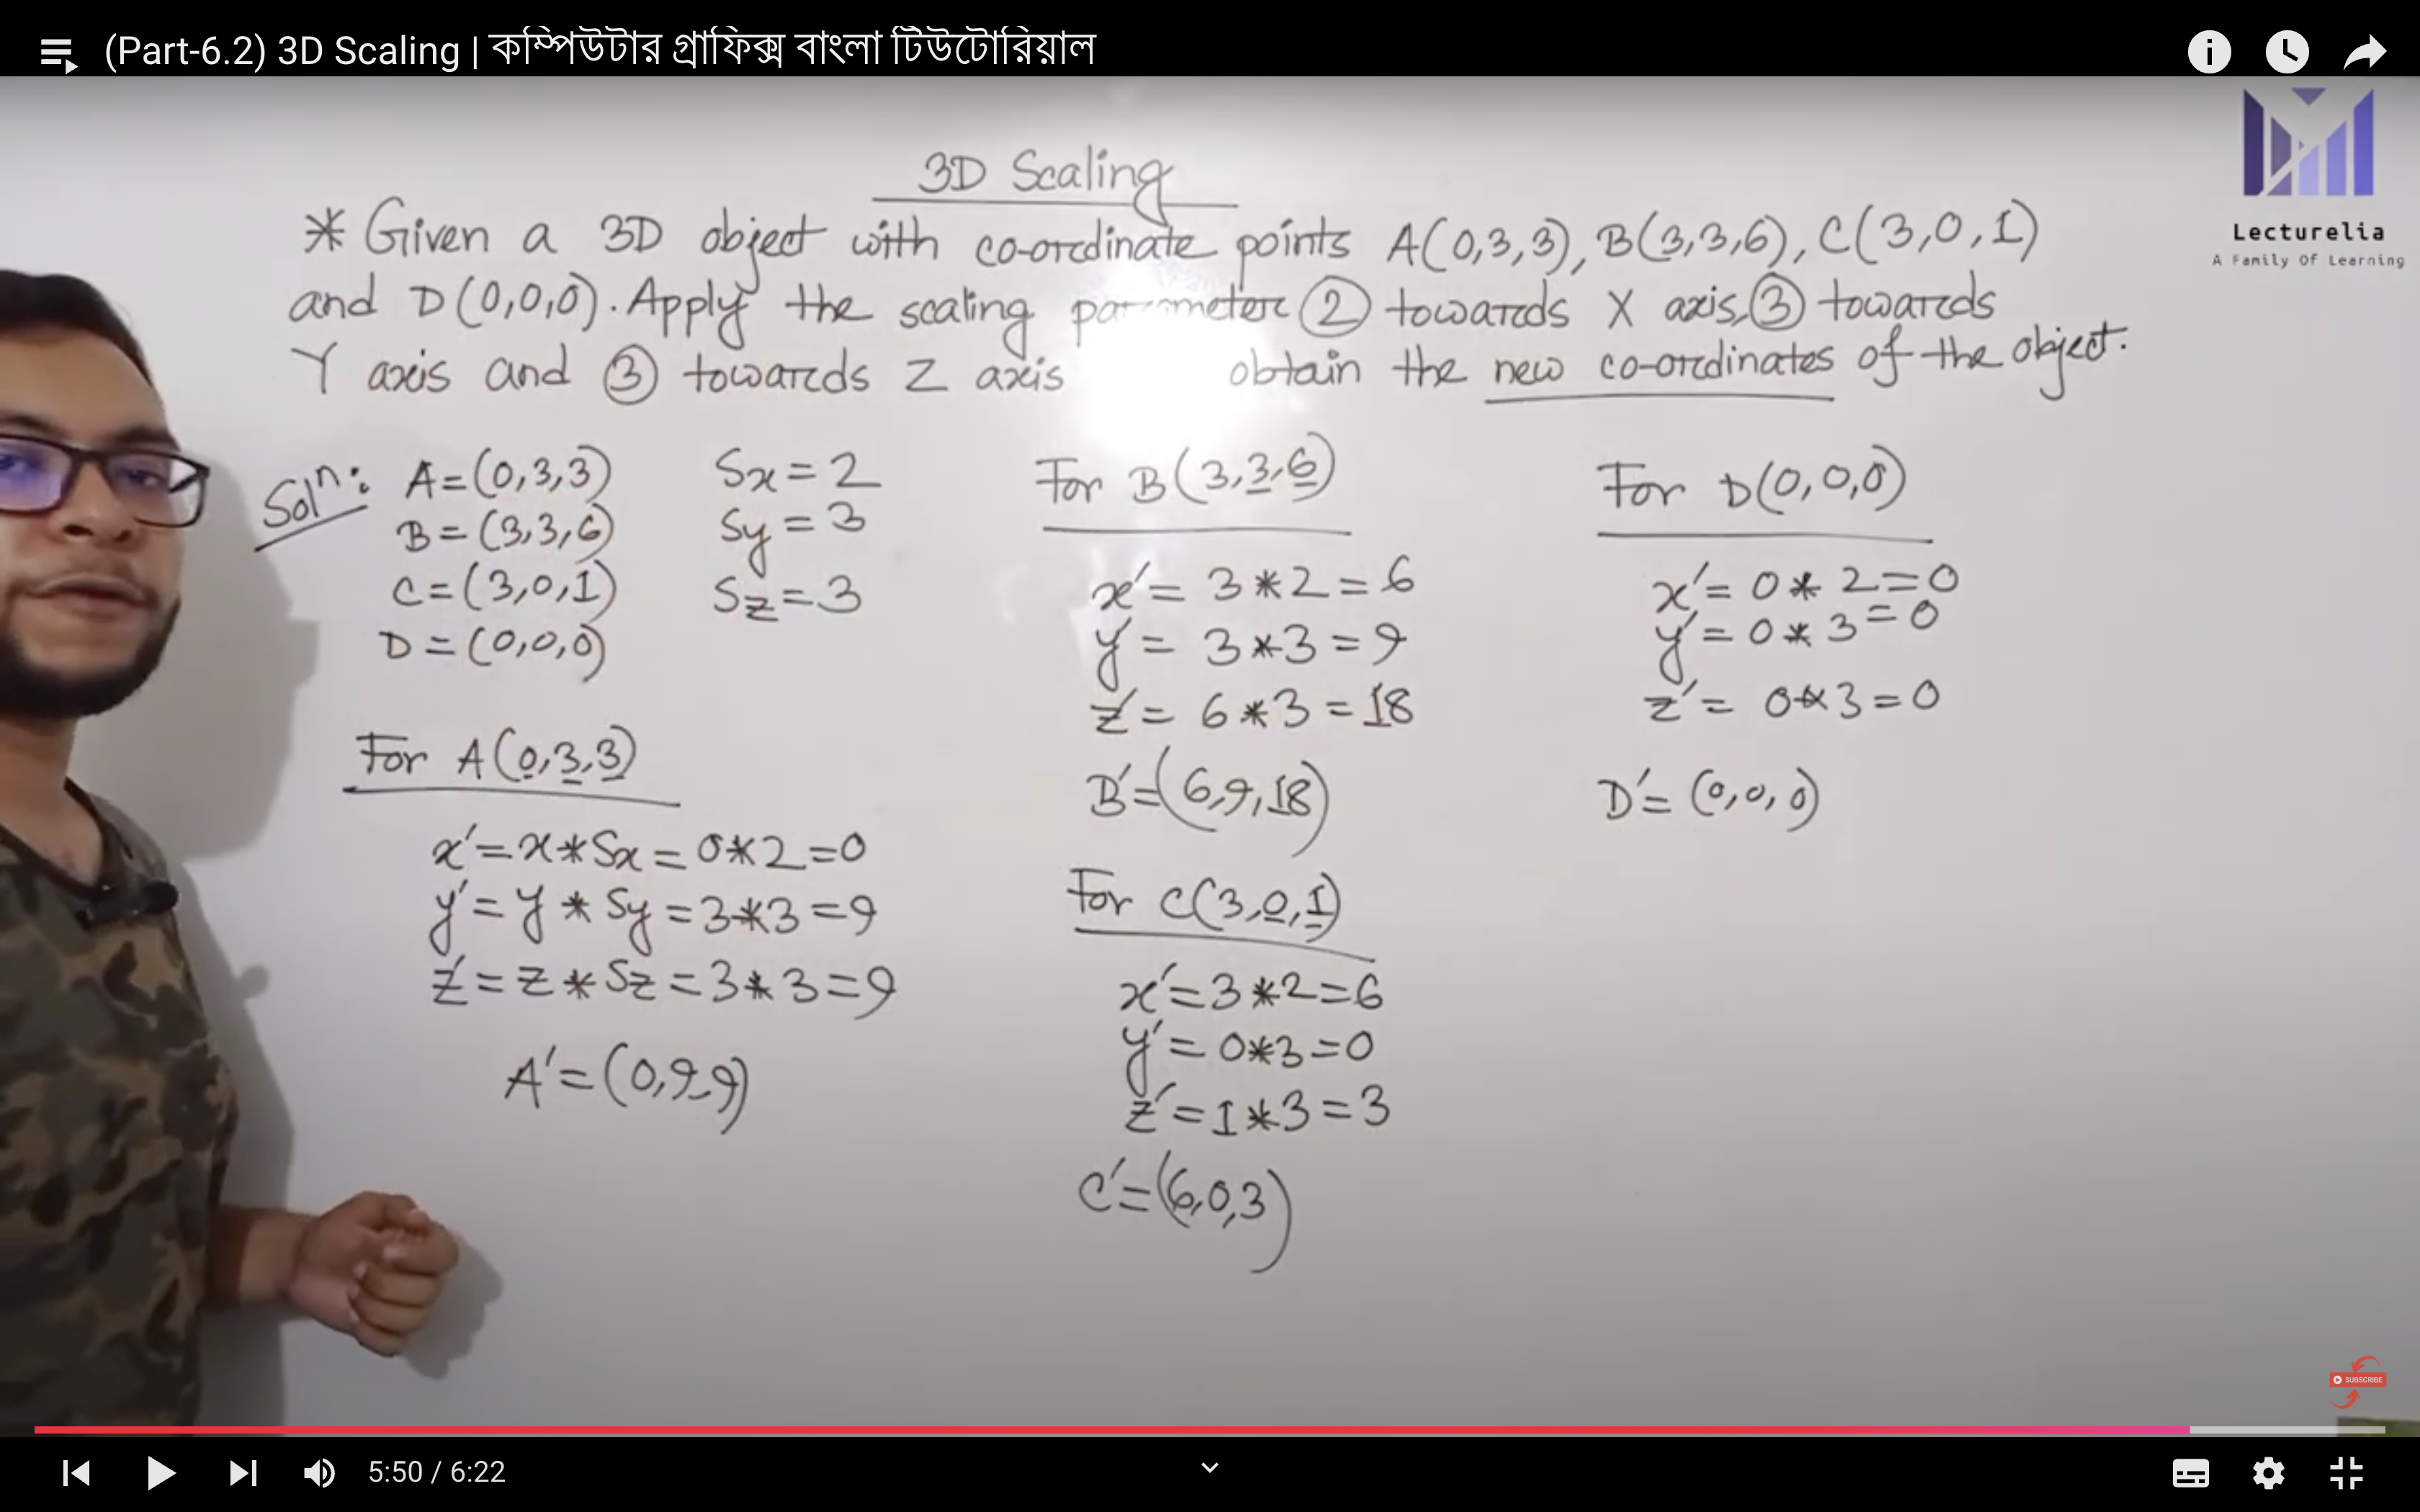 (Part-6.2) 3D Scaling | কম্পিউটার গ্রাফিক্স বাংলা টিউটোরিয়াল
Lecturelia
A Family Of Learning
3D Scaling
* Given a 3D object with co-ordinate points A(0,3,3), B(3,3,6), C(3,0,1)
and D(0,0,0). Apply the scaling parameter 2 towards X axis, 3 towards
Y axis and 3 towards Z axis obtain the new co-ordinates of the object.
Solⁿ:
A=(0,3,3)
B=(3,3,6)
C=(3,0,1)
D=(0,0,0)
Sx=2
Sy=3
Sz=3
For A(0,3,3)
x'=x*Sx=0*2=0
y'=y*Sy=3*3=9
z'=z*Sz=3*3=9
A'=(0,9,9)
For B(3,3,6)
x'=3*2=6
y'=3*3=9
z'=6*3=18
B'=(6,9,18)
For C(3,0,1)
x'=3*2=6
y'=0*3=0
z'=1*3=3
C'=(6,0,3)
For D(0,0,0)
x'=0*2=0
y'=0*3=0
z'=0*3=0
D'=(0,0,0)
SUBSCRIBE
5:50 / 6:22